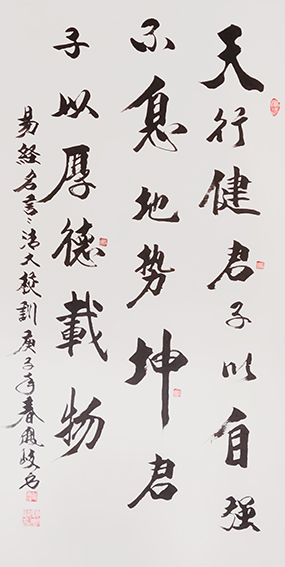 天行健君子以自强
不息地势坤君
子以厚德載物
易経名言清大校訓庚子年春